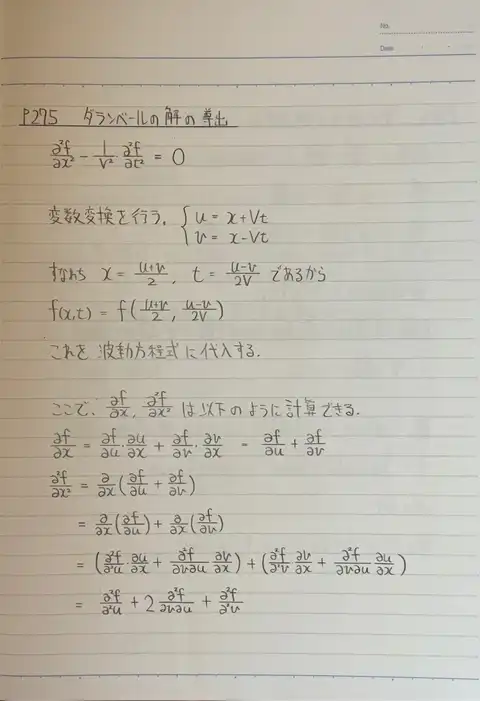 No.
Date
P275 ダランベールの解の導出
∂²f/∂x² - 1/V² ∂²f/∂t² = 0
変数変換を行う. { u = x+Vt
v = x-Vt
すなわち x = (u+v)/2, t = (u-v)/2V であるから
f(x,t) = f((u+v)/2, (u-v)/2V)
これを 波動方程式に代入する.
ここで, ∂f/∂x, ∂²f/∂x² は以下のように計算できる.
∂f/∂x = ∂f/∂u · ∂u/∂x + ∂f/∂v · ∂v/∂x = ∂f/∂u + ∂f/∂v
∂²f/∂x² = ∂/∂x (∂f/∂u + ∂f/∂v)
= ∂/∂x (∂f/∂u) + ∂/∂x (∂f/∂v)
= (∂²f/∂²u · ∂u/∂x + ∂²f/∂v∂u ∂v/∂x) + (∂²f/∂²v ∂v/∂x + ∂²f/∂v∂u ∂u/∂x)
= ∂²f/∂²u + 2 ∂²f/∂v∂u + ∂²f/∂²v